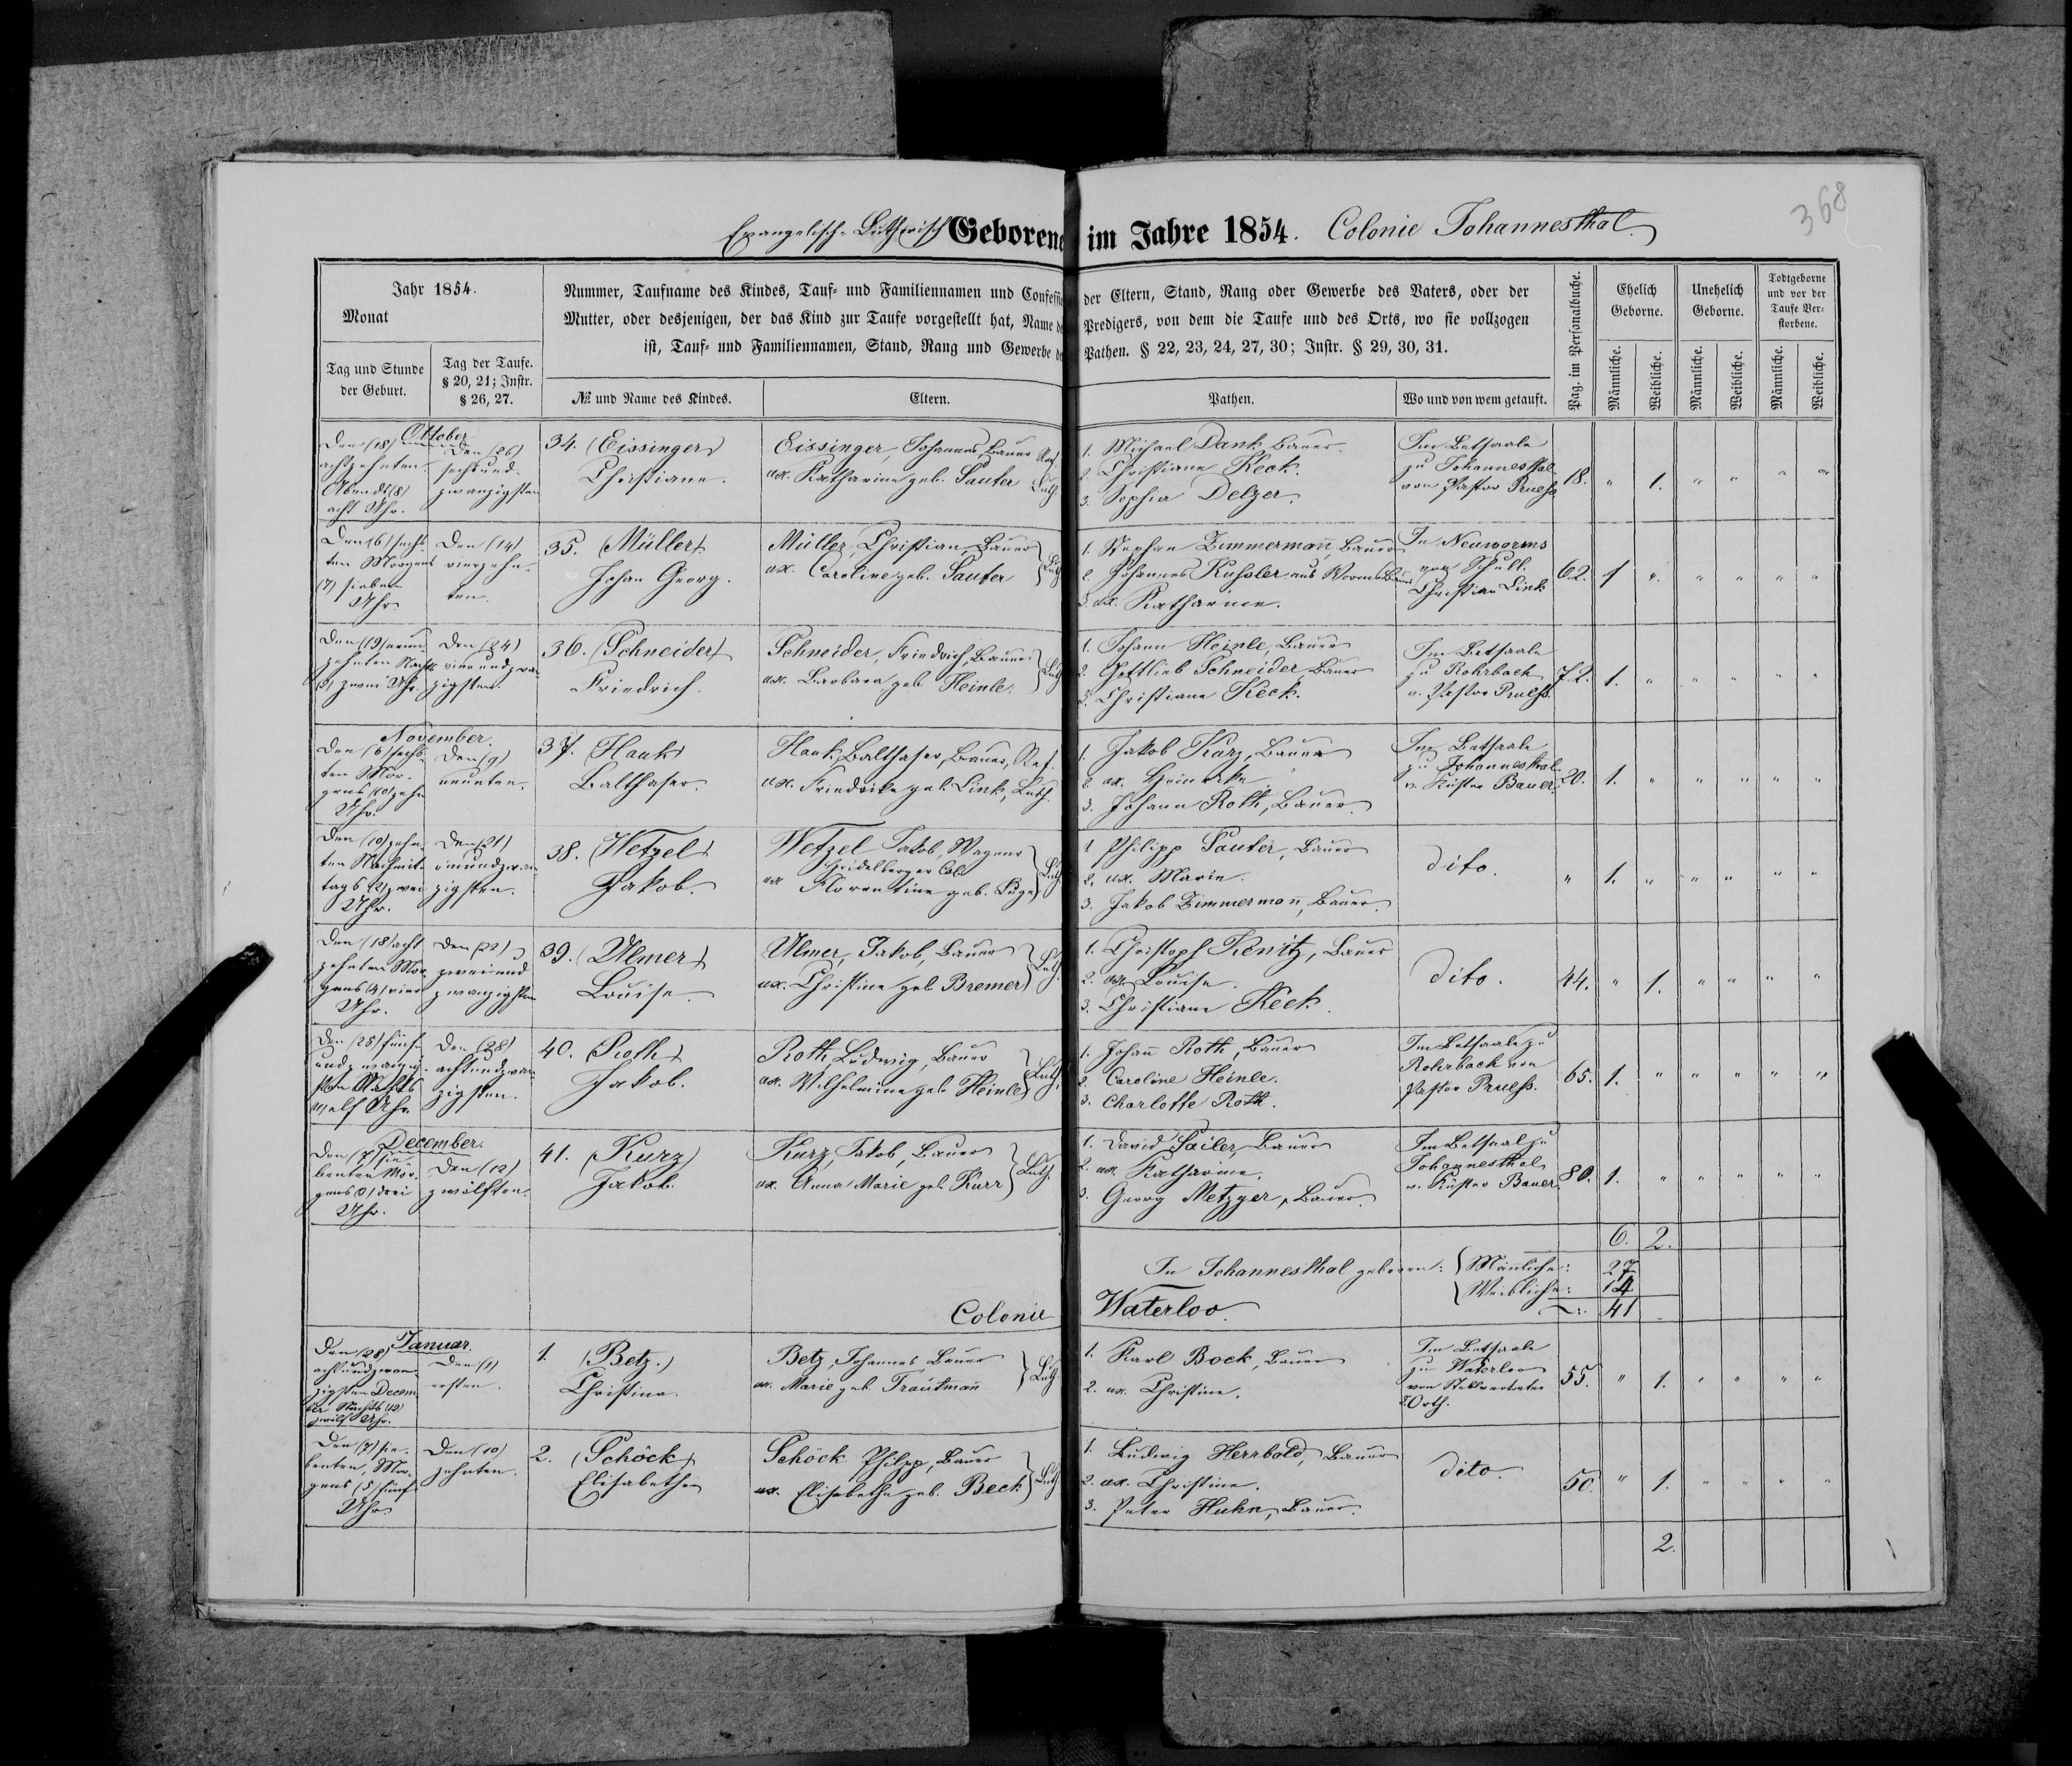 368
Evangelisch-Lutherisch Geborene im Jahre 1854. Colonie Johannesthal.
Jahr 1854.
Monat
Tag und Stunde
der Geburt.
Tag der Taufe.
§ 20, 21; Instr.
§ 26, 27.
Nummer, Taufname des Kindes, Tauf- und Familiennamen und Confessio der Eltern, Stand, Rang oder Gewerbe des Vaters, oder der
Mutter, oder desjenigen, der das Kind zur Taufe vorgestellt hat, Name de Predigers, von dem die Taufe und des Orts, wo sie vollzogen
ist, Tauf- und Familiennamen, Stand, Rang und Gewerbe de Pathen. § 22, 23, 24, 27, 30; Instr. § 29, 30, 31.
№ und Name des Kindes.
Eltern.
Pathen.
Wo und von wem getauft.
Pag. im Personalbuche.
Ehelich
Geborne.
Unehelich
Geborne.
Todtgeborne
und vor der
Taufe Ver-
storbene.
Männliche.
Weibliche.
Männliche.
Weibliche.
Männliche.
Weibliche.
October
Den (18)
achtzehnten
Abends (8)
acht Uhr.
Den (26)
sechsund-
zwanzigsten
34. (Eissinger)
Christiane.
Eissinger, Johannes, Bauer Ref.
ux. Katharine geb. Sauter Luth.
1. Michael Dank, Bauer.
2. Christiane Keck.
3. Sophia Delzer.
Im Betsaale
zu Johannesthal
von Pastor Pruess
18. " 1. " " " "
Den (6) sechs-
ten Morgens
(7) sieben
Uhr
Den (14)
vierzehn-
ten.
35. (Müller)
Johan Georg.
Müller, Christian, Bauer
ux. Caroline geb. Sauter
Luth
1. Stephan Zimmermañ, Bauer
2. Johannes Kussler aus Worms Bauer
3. ux. Katharine.
In Neuworms
von Schull.
Christian Link
62. 1 " " " " "
Den (19) neun-
zehnten Nachts
(2) zwei Uhr.
Den (24)
vierundzwan-
zigsten.
36. (Schneider)
Friedrich.
Schneider, Friedrich, Bauer
ux. Barbara geb. Heinle.
Luth
1. Johann Heinle, Bauer
2. Gottlieb Schneider Bauer
3. Christiane Keck.
Im Betsaale
zu Rohrbach
v. Pastor Pruess.
72. 1. " " " " "
November.
Den (6) sechs-
ten Mor-
gens (10) zehn
Uhr.
Den (9)
neunten.
37. (Hauk)
Balthaser.
Hauk, Balthaser, Bauer, Ref.
ux. Friedrike geb. Link, Luth.
1. Jakob Kurz, Bauer
2. ux. Heinrike
3. Johann Roth, Bauer.
Im Betsaale
zu Johannesthal
v. Küster Bauer.
20. 1. " " " " "
Den (10) zehn-
ten Nachmit-
tags (2) zwei
Uhr.
Den (21)
einundzwan-
zigsten.
38. (Wetzel)
Jakob.
Wetzel Jakob, Wagner
Heidelberger Col.
ux Florentine geb.
Luth
1 Philipp Sauter, Bauer
2. ux. Marie.
3. Jakob Zimmermañ, Bauer.
dito.
" 1. " " " " "
Den (18) acht-
zehnten Mor-
gens (4) vier
Uhr.
Den (22)
zweiund
zwanzigsten
39. (Ulmer)
Louise.
Ulmer, Jakob, Bauer
ux. Christine geb. Bremer
Luth.
1. Christoph Kenitz, Bauer
2. ux. Louise.
3. Christiane Keck.
dito.
44. " 1. " " " "
Den (25) fünf-
undzwanzig-
sten Nachts
(11) elf Uhr.
Den (28)
achtundzwan-
zigsten.
40. (Roth)
Jakob.
Roth, Ludwig, Bauer
ux. Wilhelmine geb. Heinle
Luth.
1. Johañ Roth, Bauer
2. Caroline Heinle.
3. Charlotte Roth.
Im Betsaale zu
Rohrbach von
Pastor Pruess.
65. 1. " " " " "
December.
Den (7) sie-
benten Mor-
gens (3) drei
Uhr.
Den (12)
zwölften.
41. (Kurz)
Jakob.
Kurz, Jakob, Bauer
ux. Anna Marie geb. Kurr
Luth.
1. David Sailer, Bauer
2. ux. Katharine.
3. Georg Metzger, Bauer.
Im Betsaal zu
Johannesthal
v. Küster Bauer.
80. 1. " " " " "
6. 2.
In Johannesthal geboren: Mäñliche: 27
Weibliche: 14
41
Colonie Waterloo.
Januar.
Den (28)
achtundzwan-
zigsten Decem-
ber Nachts (12)
zwölf Uhr.
Den (1)
ersten.
1. (Betz.)
Christina.
Betz, Johannes, Bauer
ux. Marie geb. Trautmañ
Luth
1. Karl Bock, Bauer
2. ux. Christine.
Im Betsaale
zu Waterloo
von Stellvertreter
Orth.
55. " 1. " " " "
Den (7) sie-
benten, Mor-
gens (5) fünf
Uhr.
Den (10)
zehnten.
2. (Schöck)
Elisabethe
Schöck Philipp, Bauer
ux. Elisabethe geb. Beck
Luth
1. Ludwig Herrbold, Bauer
2. ux. Christine.
3. Peter Huhn, Bauer.
dito.
50. " 1. " " " "
2.